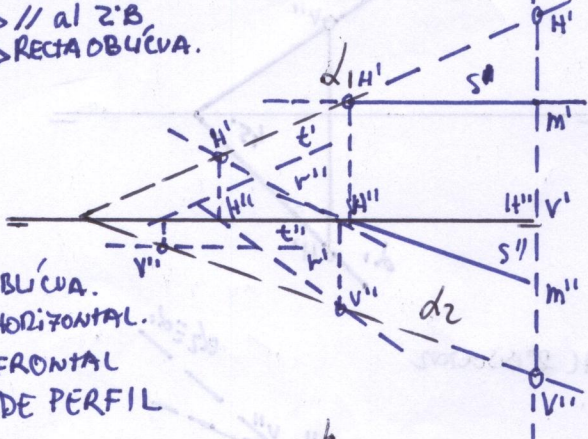 > // al 2ºB
> RECTA OBLÍCUA.
H'
α1
H'
s'
m'
H'
t'
r''
H''
H''
H''
V'
t''
r'
s''
V''
m''
V''
α2
V''
BLÍCUA.
HORIZONTAL.
FRONTAL
DE PERFIL